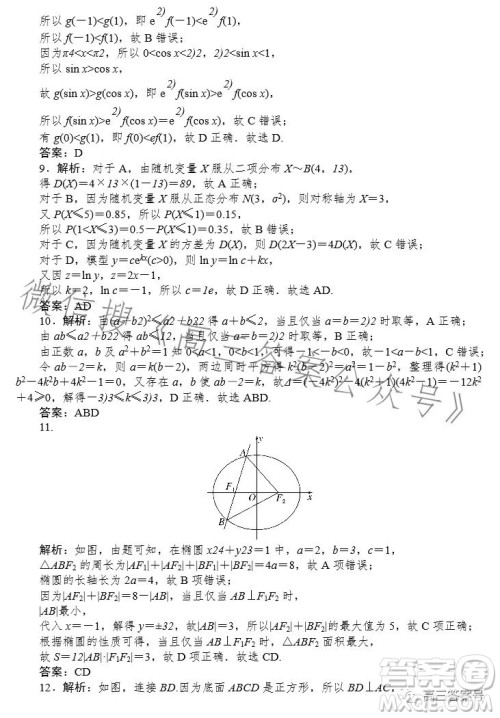 所以 g(-1)<g(1)，即 e2)f(-1)<e2)f(1)，
所以 f(-1)<f(1)，故 B 错误；
因为π4<x<π2，所以 0<cos x<2)2，2)2<sin x<1，
所以 sin x>cos x，
故 g(sin x)>g(cos x)，即 e2)f(sin x)>e2)f(cos x)，
所以 f(sin x)>e2)f(cos x)＝e2)f(cos x)，故 C 错误；
有 g(0)<g(1)，即 f(0)<ef(1)，故 D 正确．故选 D.
答案：D
9．解析：对于 A，由随机变量 X 服从二项分布 X～B(4，13)，
得 D(X)＝4×13×(1－13)＝89，故 A 正确；
对于 B，因为随机变量 X 服从正态分布 N(3，σ2)，则对称轴为 X＝3，
又 P(X≤5)＝0.85，所以 P(1)＝0.15，
所以 P(1<X≤3)＝0.5－P(X≤1)＝0.35，故 B 错误；
对于 C，因为随机变量 X 的方差为 D(X)，则 D(2X－3)＝4D(X)，故 C 错误；
对于 D，模型 y＝cekx(c>0)，则 ln y＝ln c＋kx，
又因 z＝ln y，z＝2x－1，
所以 k＝2，ln c＝－1，所以 c＝1e，故 D 正确．故选 AD.
答案：AD
10．解析：由(a＋b2)2≤a2＋b22 得 a＋b≤2，当且仅当 a＝b＝2)2 时取等，A 正确；
由 ab≤a2＋b22 得 ab≤12，当且仅当 a＝b＝2)2 时取等，B 正确；
由正数 a，b 及 a2＋b2＝1 知 0<a<1，0<b<1，可得－1<－b<0，故－1<a－b<1，C 错误；
令 ab－2＝k，则 a＝k(b－2)，两边同时平方得 k2(b－2)2＝a2＝1－b2，整理得(k2＋1)
b2－4k2b＋4k2－1＝0，又存在 a，b 使 ab－2＝k，故Δ＝(－4k2)2－4(k2＋1)(4k2－1)＝－12k2
＋4≥0，解得－3)3≤k≤3)3，D 正确．故选 ABD.
答案：ABD
11.
y
A
F1
O
F2
x
B
解析：如图，由题可知，在椭圆 x24＋y23＝1 中，a＝2，b＝3，c＝1，
△ABF2 的周长为|AF1|＋|AF2|＋|BF1|＋|BF2|＝4a＝8，故 A 项错误；
椭圆的长轴长为 2a＝4，故 B 项错误；
因为|AF2|＋|BF2|＝8－|AB|，当且仅当 AB⊥F1F2 时，
|AB|最小，
代入 x＝－1，解得 y＝±32，故|AB|＝3，所以|AF2|＋|BF2|的最大值为 5，故 C 项正确；
根据椭圆的性质可得，当且仅当 AB⊥F1F2 时，△ABF2 面积最大，
故 S＝12|AB|·|F1F2|＝3，故 D 项正确．故选 CD.
答案：CD
12．解析：如图，连接 BD.因为底面 ABCD 是正方形，所以 BD⊥AC，